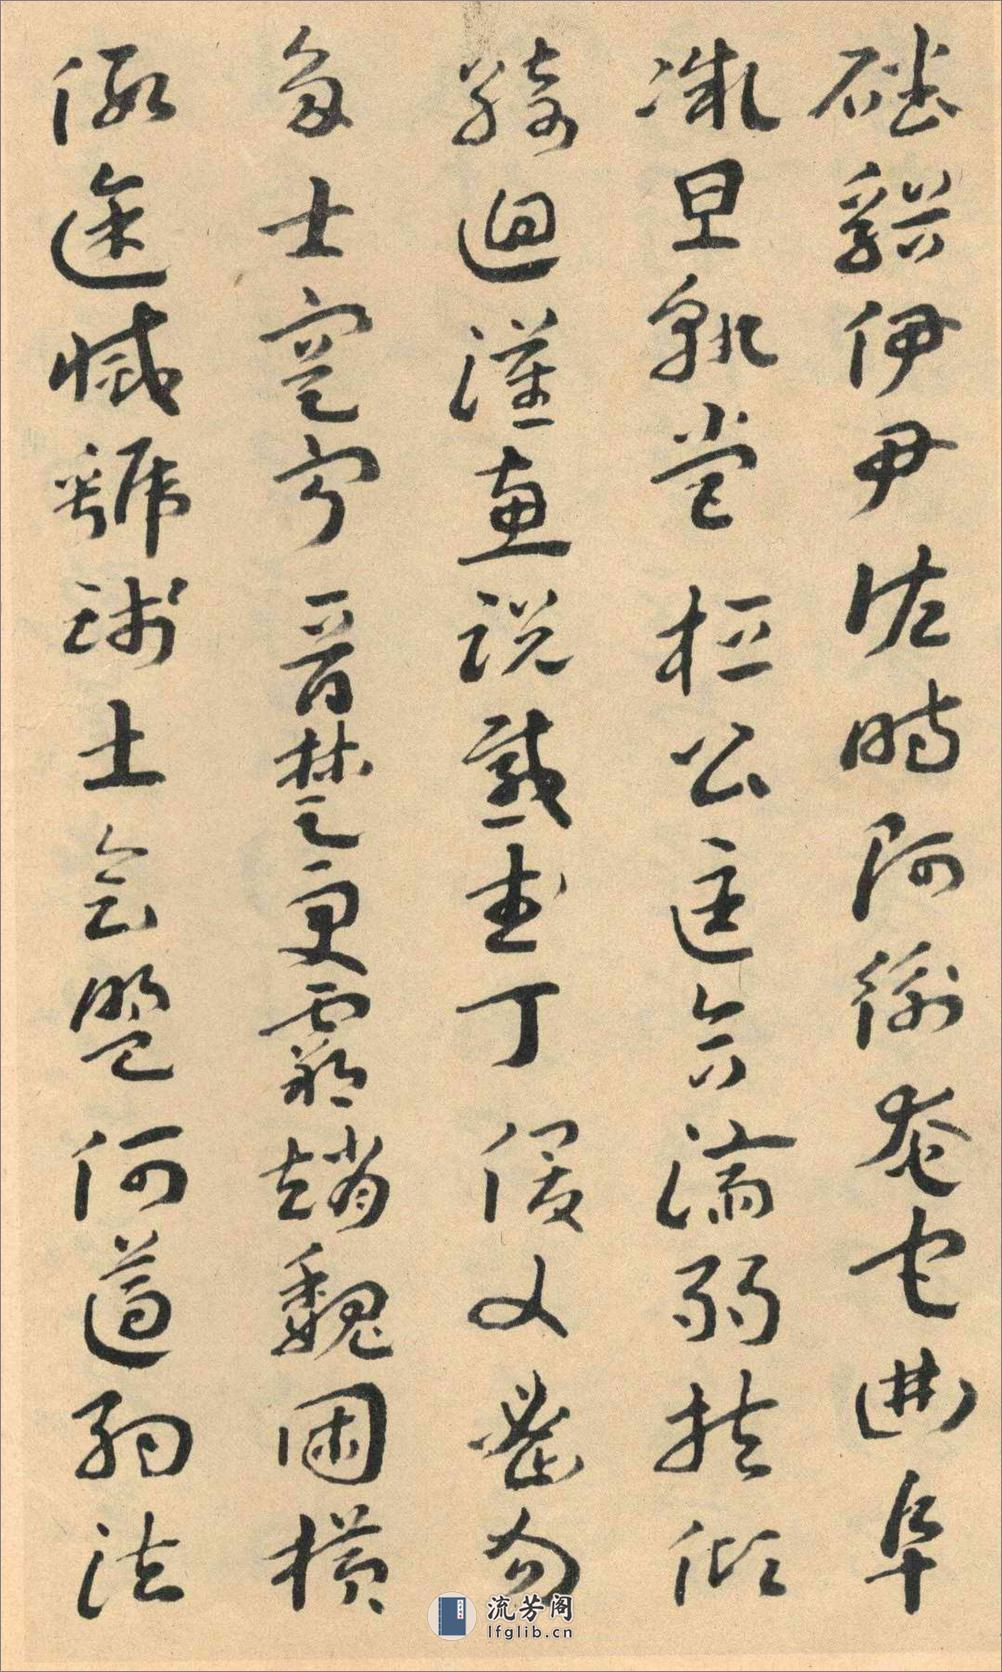 磻谿伊尹佐時阿衡奄宅曲阜
微旦孰營桓公匡合濟弱扶傾
綺迴漢惠說感武丁俊乂密勿
多士寔寧晉楚更霸趙魏困橫
假途滅虢踐土會盟何遵約法
流芳阁
lfglib.cn